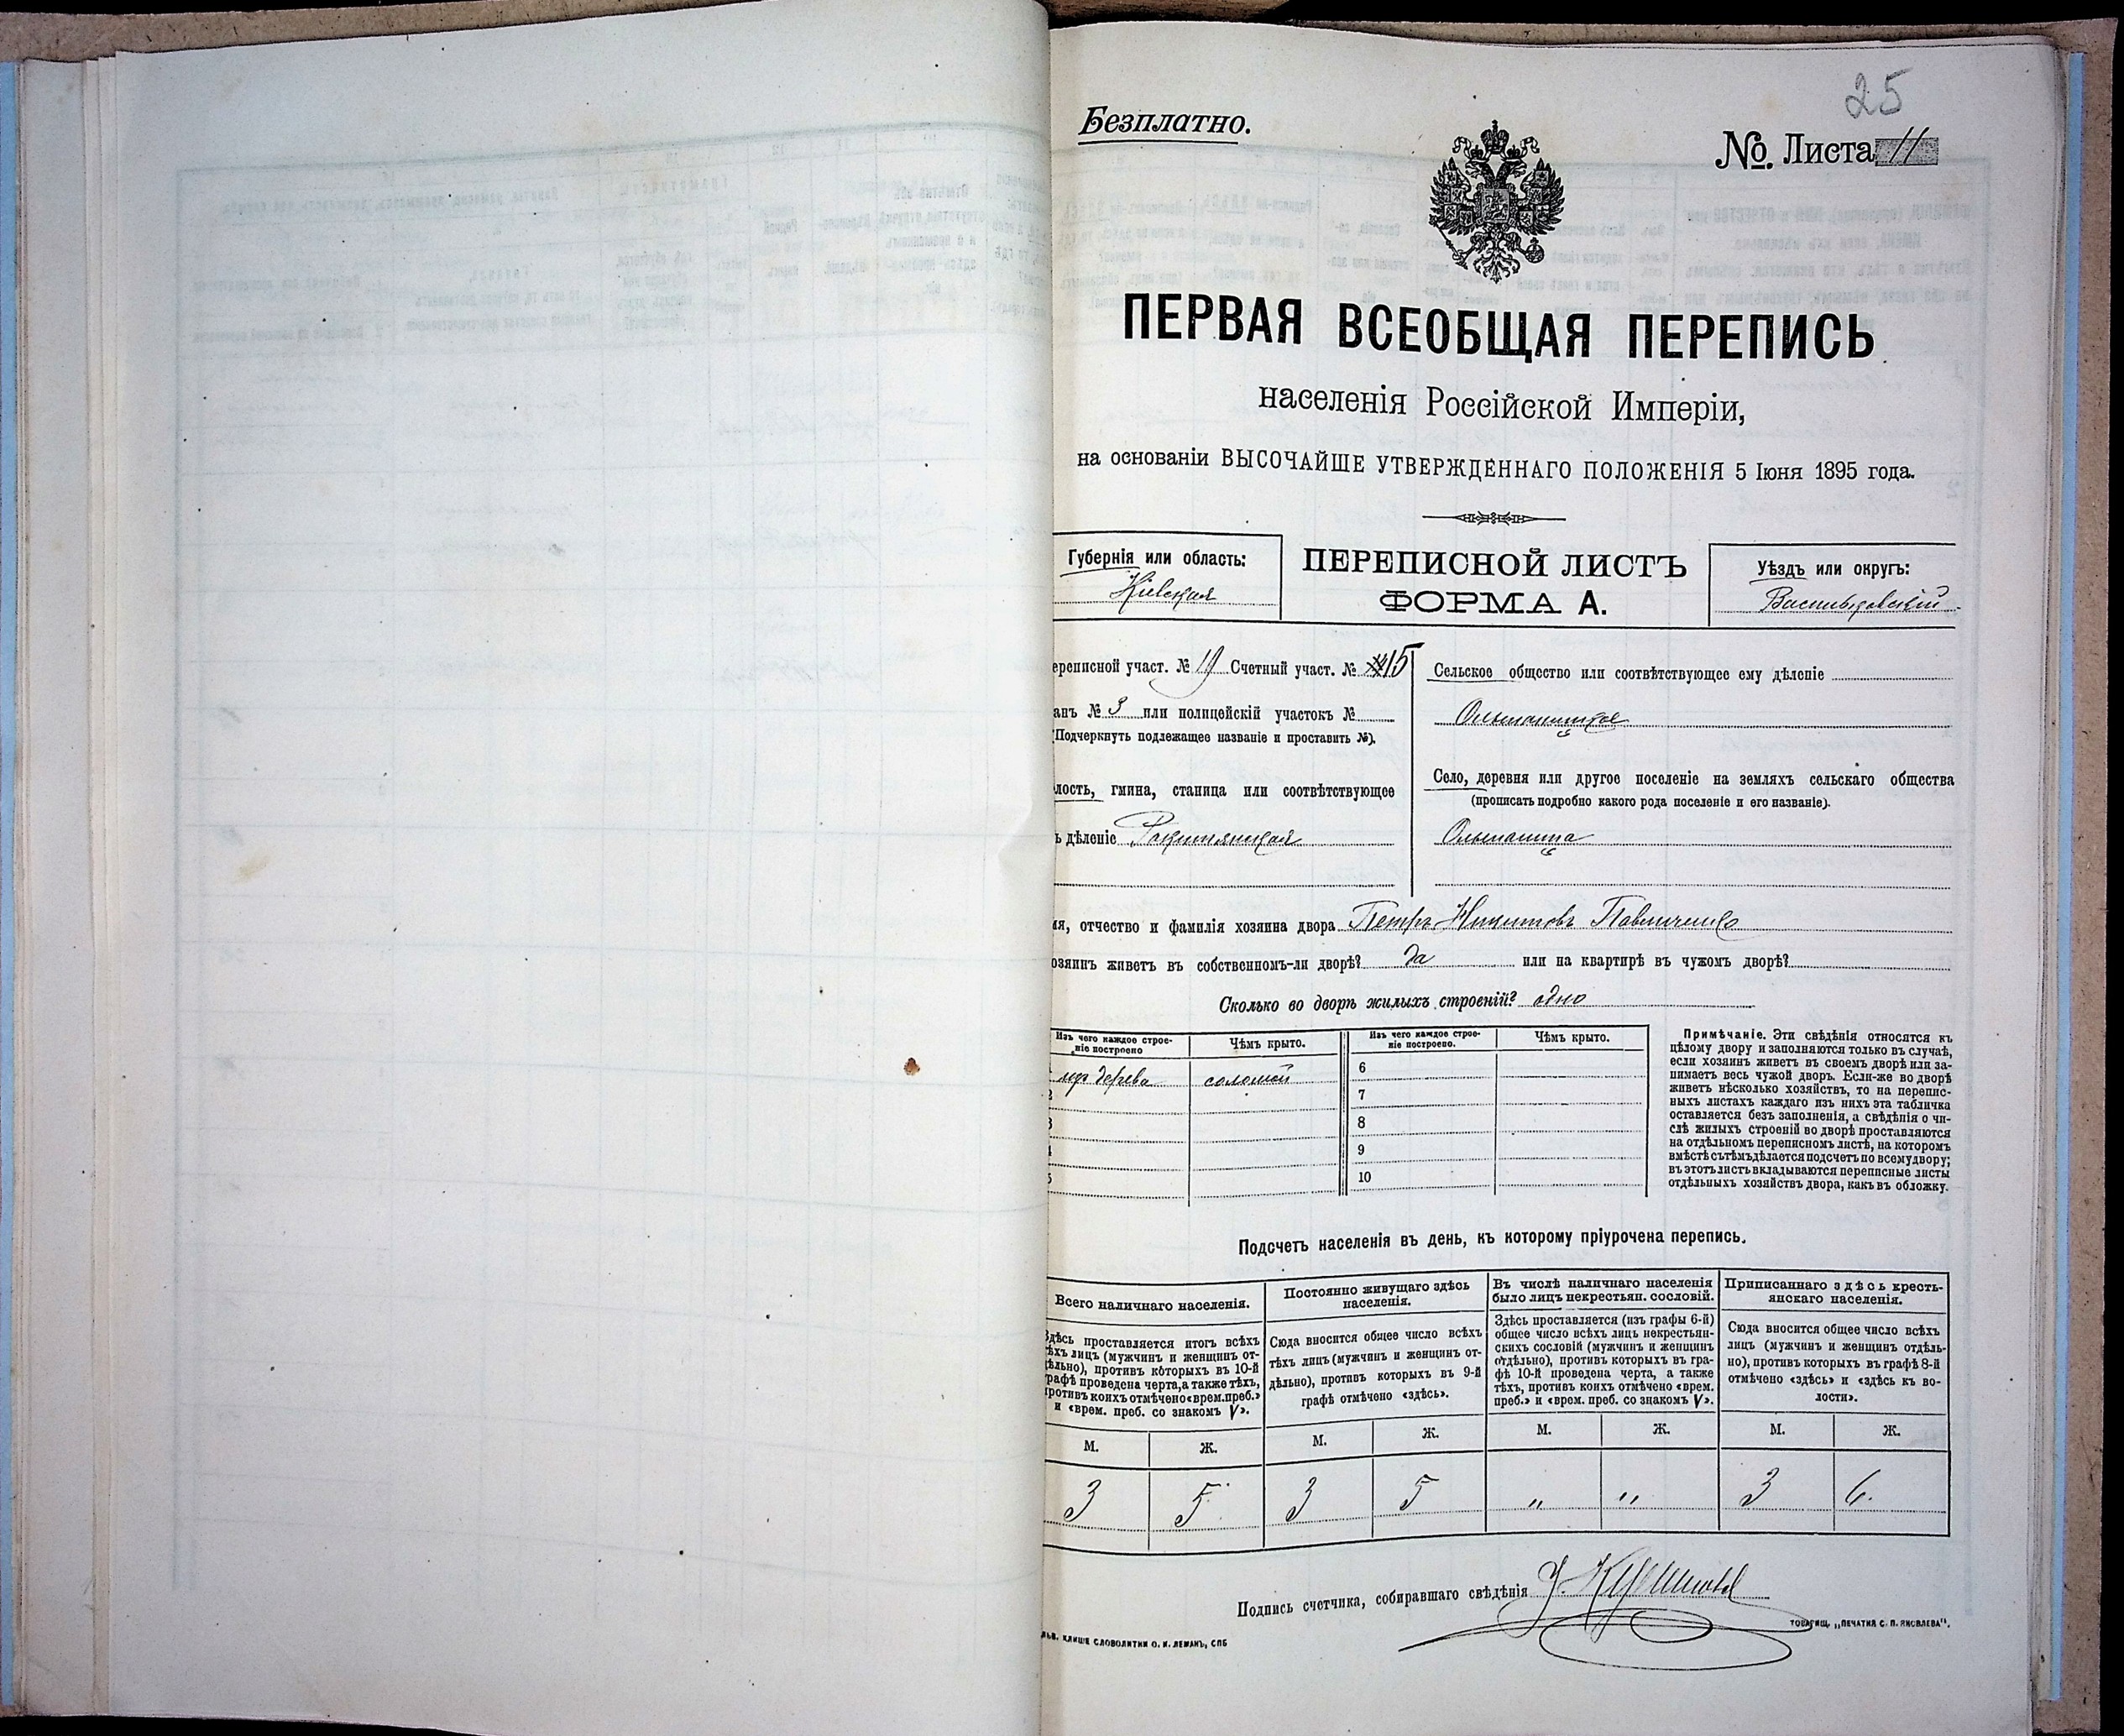 25
Безплатно.
№. Листа 11
ПЕРВАЯ ВСЕОБЩАЯ ПЕРЕПИСЬ
населенія Россійской Имперіи,
на основаніи ВЫСОЧАЙШЕ УТВЕРЖДЕННАГО ПОЛОЖЕНІЯ 5 Іюня 1895 года.
Губернія или область:
Кіевская
ПЕРЕПИСНОЙ ЛИСТЪ
ФОРМА А.
Уѣздъ или округъ:
Васильковскій
ереписной участ. № 19 Счетный участ. № 15
анъ № 3 или полицейскій участокъ №
(Подчеркнуть подлежащее названіе и проставить №).
лость, гмина, станица или соотвѣтствующее
ь дѣленіе Ракитянская
Сельское общество или соотвѣтствующее ему дѣленіе
Ольшаницкое
Село, деревня или другое поселеніе на земляхъ сельскаго общества
(прописать подробно какого рода поселеніе и его названіе).
Ольшаница
мя, отчество и фамилія хозяина двора Петръ Никитовъ Павличенко
озяинъ живетъ въ собственномъ-ли дворѣ? да или на квартирѣ въ чужомъ дворѣ?
Сколько во дворѣ жилыхъ строеній? одно
Изъ чего каждое строе-
ніе построено
Чѣмъ крыто.
Изъ чего каждое строе-
ніе построено.
Чѣмъ крыто.
изъ дерева соломой 6
2 7
3 8
4 9
5 10
Примѣчаніе. Эти свѣдѣнія относятся къ
цѣлому двору и заполняются только въ случаѣ,
если хозяинъ живетъ въ своемъ дворѣ или за-
нимаетъ весь чужой дворъ. Если-же во дворѣ
живетъ нѣсколько хозяйствъ, то на перепис-
ныхъ листахъ каждаго изъ нихъ эта табличка
оставляется безъ заполненія, а свѣдѣнія о чи-
слѣ жилыхъ строеній во дворѣ проставляются
на отдѣльномъ переписномъ листѣ, на которомъ
вмѣстѣ съ тѣмъ дѣлается подсчетъ по всему двору;
въ этотъ листъ вкладываются переписные листы
отдѣльныхъ хозяйствъ двора, какъ въ обложку.
Подсчетъ населенія въ день, къ которому пріурочена перепись.
Всего наличнаго населенія.
Здѣсь проставляется итогъ всѣхъ
тѣхъ лицъ (мужчинъ и женщинъ от-
дѣльно), противъ которыхъ въ 10-й
графѣ проведена черта, а также тѣхъ,
противъ коихъ отмѣчено «врем. преб.»
и «врем. преб. со знакомъ V».
М. Ж.
3 5
Постоянно живущаго здѣсь
населенія.
Сюда вносится общее число всѣхъ
тѣхъ лицъ (мужчинъ и женщинъ от-
дѣльно), противъ которыхъ въ 9-й
графѣ отмѣчено «здѣсь».
М. Ж.
3 5
Въ числѣ наличнаго населенія
было лицъ некрестьян. сословій.
Здѣсь проставляется (изъ графы 6-й)
общее число всѣхъ лицъ некрестьян-
скихъ сословій (мужчинъ и женщинъ
отдѣльно), противъ которыхъ въ гра-
фѣ 10-й проведена черта, а также
тѣхъ, противъ коихъ отмѣчено «врем.
преб.» и «врем. преб. со знакомъ V».
М. Ж.
" "
Приписаннаго здѣсь кресть-
янскаго населенія.
Сюда вносится общее число всѣхъ
лицъ (мужчинъ и женщинъ отдѣль-
но), противъ которыхъ въ графѣ 8-й
отмѣчено «здѣсь» и «здѣсь къ во-
лости».
М. Ж.
3 6.
Подпись счетчика, собиравшаго свѣдѣнія
ЛЬВ. КЛИШЕ СЛОВОЛИТНИ О. И. ЛЕМАНЪ, СПБ
ТОВАРИЩ. „ПЕЧАТНЯ С. П. ЯКОВЛЕВА".